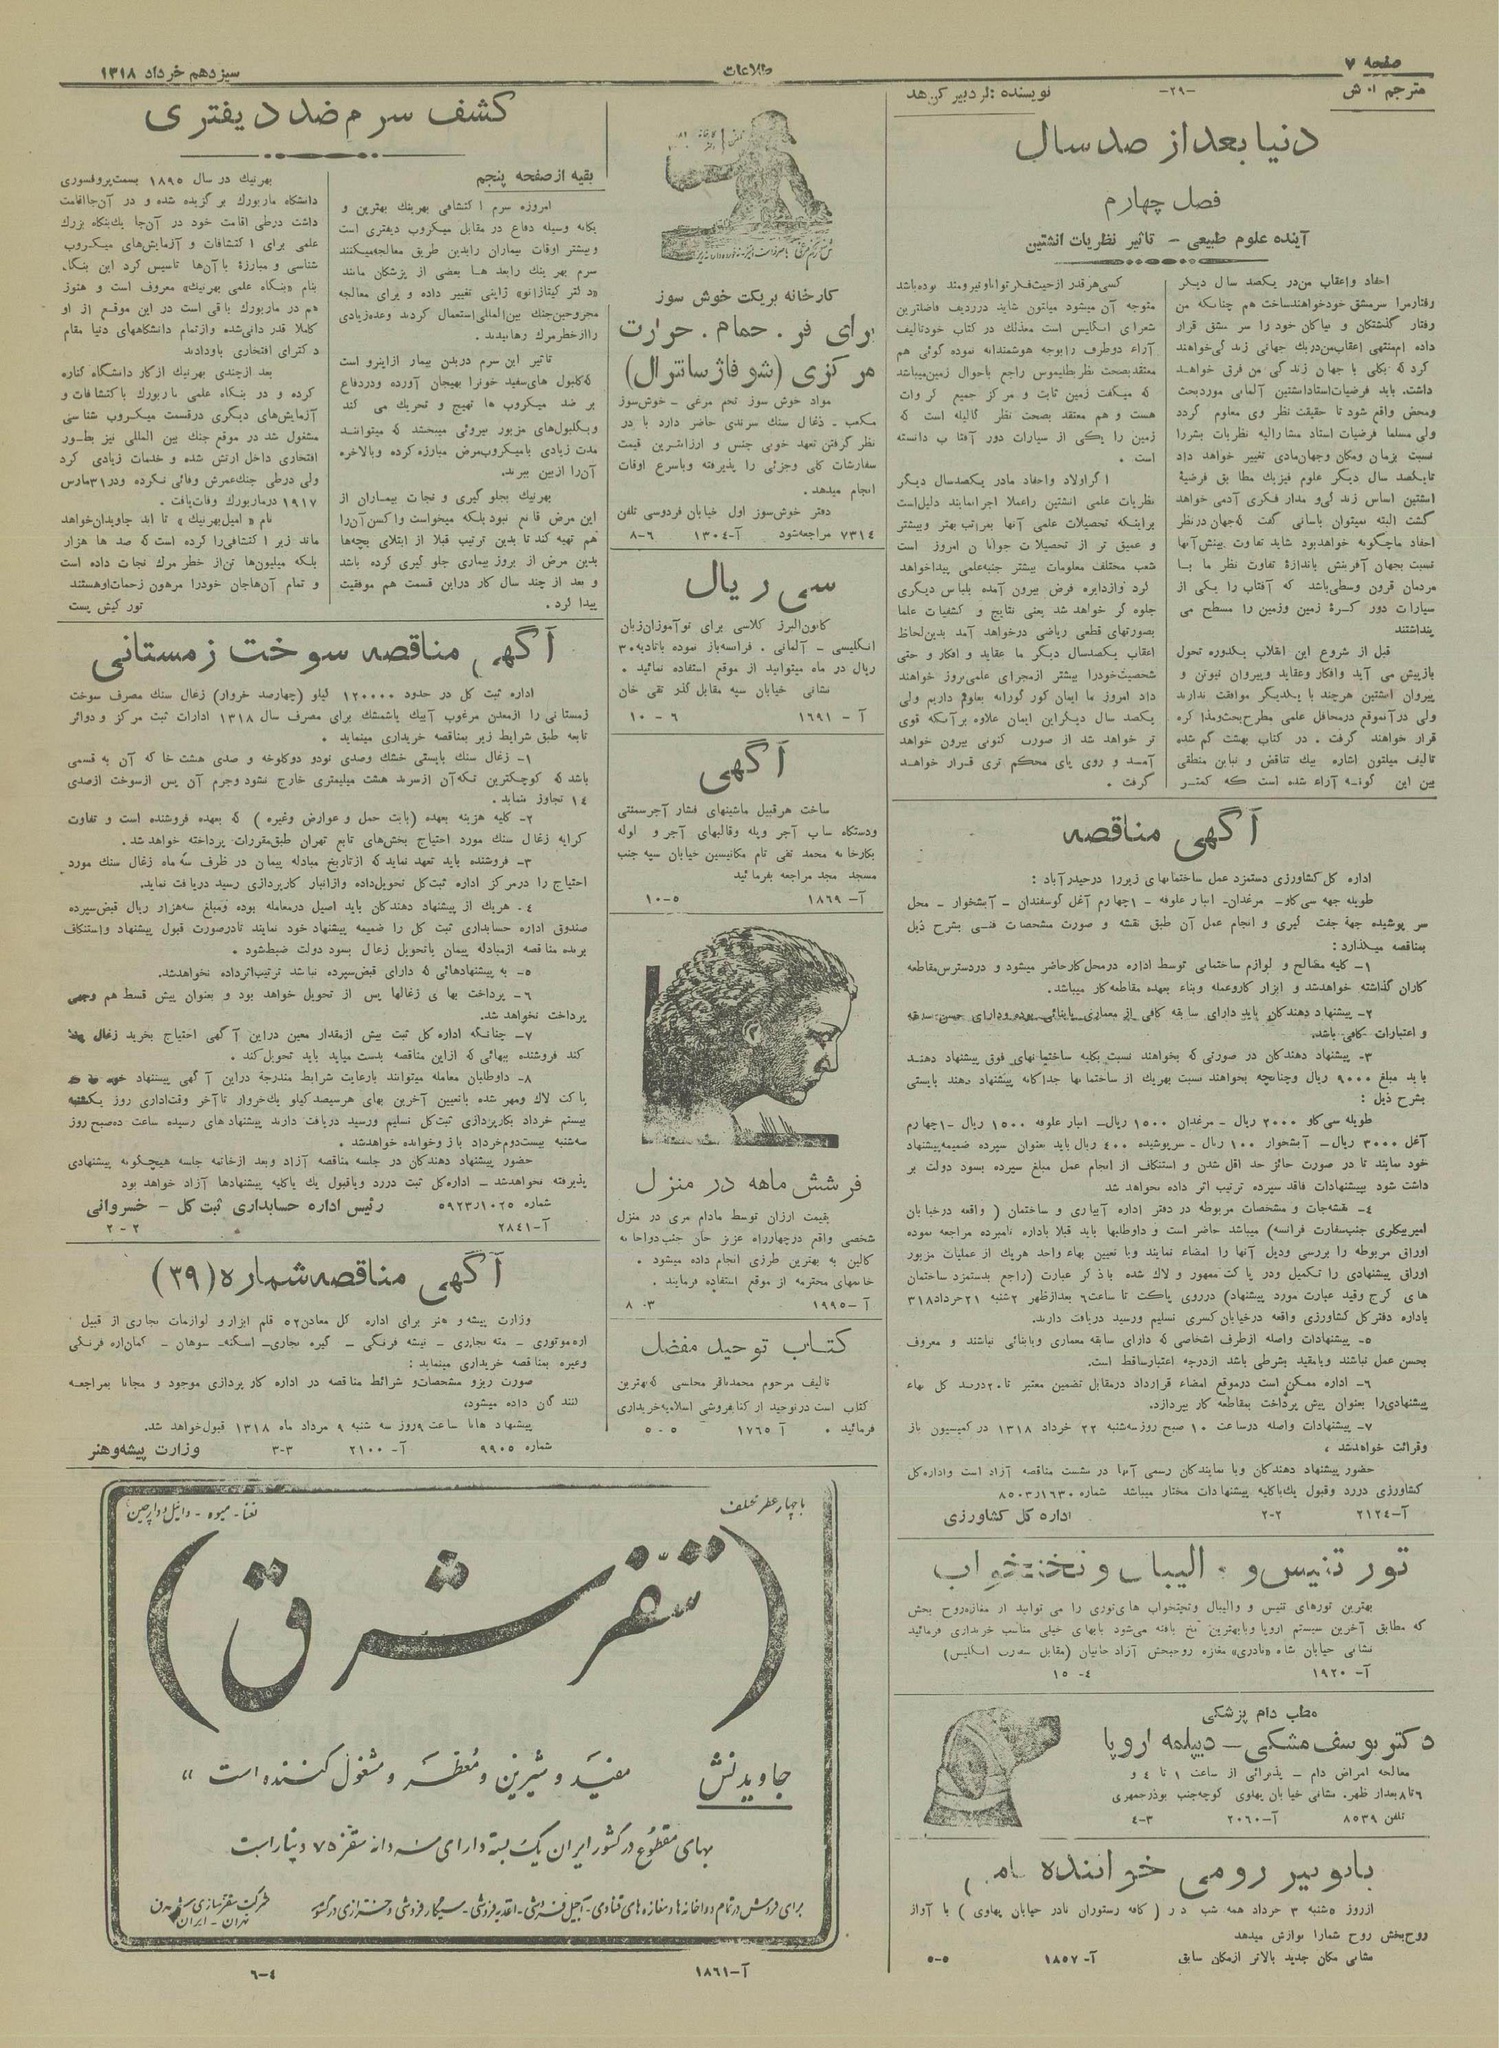 صفحه ۷
طلاعات
سیزدهم خرداد ۱۳۱۸
مترجم ا. ش
-۲۹-
نویسنده : لرد بیر کن هد
دنیا بعد از صد سال
فصل چهارم
آینده علوم طبیعی - تاثیر نظریات انشتین
احفاد و اعقاب من در یکصد سال دیگر
رفتار مرا سرمشق خود خواهند ساخت هم چنانکه من
رفتار گذشتگان و نیاکان خود را سر مشق قرار
داده ام منتهی اعقاب من دریك جهانی زندگی خواهند
کرد که بکلی با جهان زندگی من فرق خواهد
داشت. باید فرضیات استاد انشتین آلمانی مورد بحث
ومحض واقع شود تا حقیقت نظر وی معلوم گردد
ولی مسلما فرضیات استاد مشارالیه نظریات بشر را
نسبت بزمان ومکان وجهان مادی تغییر خواهد داد
تا یکصد سال دیگر علوم فیزیك مطابق فرضیهٔ
انشتین اساس زندگی و مدار فکری آدمی خواهد
گشت البته نمیتوان باسانی گفت که جهان در نظر
احفاد ما چگونه خواهد بود شاید تفاوت بینش آنها
نسبت بجهان آفرینش باندازهٔ تفاوت نظر ما با
مردمان قرون وسطی باشد که آفتاب را یکی از
سیارات دور کرهٔ زمین وزمین را مسطح می
پنداشتند
قبل از شروع این انقلاب یکدوره تحول
بازپیش می آید وافکار وعقاید وپیروان نیوتن و
پیروان انشتین هرچند با یکدیگر موافقت ندارند
ولی در آنموقع در محافل علمی مطرح بحث ومذاکره
قرار خواهند گرفت . در کتاب بهشت گم شده
تالیف میلتون اشاره بیك تناقض و تباین منطقی
بین این گونه آراء شده است که کمتر
کسی هرقدر از حیث فکر توانا و نیرومند بوده باشد
متوجه آن میشود میلتون شاید در ردیف فاضلترین
شعرای انگلیس است معذلك در کتاب خود تالیف
آراء دوطرف را بوجه هوشمندانه نموده گوئی هم
معتقد بصحت نظر بطلیموس راجع باحوال زمین میباشد
که میگفت زمین ثابت و مرکز جمیع کروات
هست و هم معتقد بصحت نظر گالیله است که
زمین را یکی از سیارات دور آفتاب دانسته
است .
اگر اولاد واحفاد ما در یکصد سال دیگر
نظریات علمی انشتین را عملا اجرا نمایند دلیل است
بر اینکه تحصیلات علمی آنها بمراتب بهتر وبیشتر
و عمیق تر از تحصیلات جوانان امروز است
شعب مختلف معلومات بیشتر جنبه علمی پیدا خواهد
کرد و از دایره فرض بیرون آمده بلباس دیگری
جلوه گر خواهد شد یعنی نتایج و کشفیات علما
بصورتهای قطعی ریاضی درخواهد آمد بدین لحاظ
اعقاب یکصد سال دیگر ما عقاید و افکار و حتی
شخصیت خود را بیشتر از مجرای علمی بروز خواهند
داد امروز ما ایمان کور کورانه بعلوم داریم ولی
یکصد سال دیگر این ایمان علاوه بر آنکه قوی
تر خواهد شد از صورت کنونی بیرون خواهد
آمد و روی پای محکم تری قرار خواهد
گرفت .
آگهی مناقصه
اداره کل کشاورزی دستمزد عمل ساختمانهای زیر را در حیدرآباد :
طویله جهه سی گاو - مرغدان - انبار علوفه - ۱ چهارم آغل گوسفندان - آبشخوار - محل
سر پوشیده جهة جفت گیری و انجام عمل آن طبق نقشه و صورت مشخصات فنی بشرح ذیل
بمناقصه میگذارد :
۱- کلیه مصالح و لوازم ساختمانی توسط اداره در محل کار حاضر میشود و در دسترس مقاطعه
کاران گذاشته خواهد شد و ابزار کار وعمله وبناء بعهده مقاطعه کار میباشد.
۲- پیشنهاد دهندگان باید دارای سابقه کافی از معماری یا بنائی بوده ودارای حسن سابقه
و اعتبارات کافی باشد.
۳- پیشنهاد دهندگان در صورتی که بخواهند نسبت بکلیه ساختمانهای فوق پیشنهاد دهند
باید مبلغ ۹۰۰۰ ریال وچنانچه بخواهند نسبت بهریك از ساختمانها جداگانه پیشنهاد دهند بایستی
بشرح ذیل :
طویله سی گاو ۲۰۰۰ ریال - مرغدان ۱۵۰۰ ریال - انبار علوفه ۱۵۰۰ ریال - ۱ چهارم
آغل ۳۰۰۰ ریال - آبشخوار ۱۰۰ ریال - سرپوشیده ۴۰۰ ریال باید بعنوان سپرده ضمیمه پیشنهاد
خود نمایند تا در صورت حائز حد اقل شدن و استنکاف از انجام عمل مبلغ سپرده بسود دولت بر
داشت شود بپیشنهادات فاقد سپرده ترتیب اثر داده نخواهد شد
۴- نقشه جات و مشخصات مربوطه در دفتر اداره آبیاری و ساختمان ( واقعه در خیابان
امیر بیکلری جنب سفارت فرانسه) میباشد حاضر است و داوطلبها باید قبلا باداره نامبرده مراجعه نموده
اوراق مربوطه را بررسی وذیل آنها را امضاء نمایند وبا تعیین بهاء واحد هریك از عملیات مزبور
اوراق پیشنهادی را تکمیل ودر پاکت ممهور و لاك شده با ذکر عبارت (راجع بدستمزد ساختمان
های کرج وقید عبارت مورد پیشنهاد) درروی پاکت تا ساعت ۶ بعدازظهر ۲شنبه ۲۱خرداد۳۱۸
باداره دفتر کل کشاورزی واقعه در خیابان کسری تسلیم ورسید دریافت دارند.
۵- پیشنهادات واصله از طرف اشخاصی که دارای سابقه معماری وبا بنائی نباشند و معروف
بحسن عمل نباشند و یا مقید بشرطی باشد از درجه اعتبار ساقط است.
۶- اداره ممکن است در موقع امضاء قرارداد در مقابل تضمین معتبر تا ۲۰ درصد کل بهاء
پیشنهادی را بعنوان پیش پرداخت بمقاطعه کار بپردازد.
۷- پیشنهادات واصله درساعت ۱۰ صبح روز سه شنبه ۲۲ خرداد ۱۳۱۸ در کمیسیون باز
وقرائت خواهد شد ،
حضور پیشنهاد دهندگان ویا نمایندگان رسمی آنها در نشست مناقصه آزاد است واداره کل
کشاورزی در رد وقبول یك یا کلیه پیشنهادات مختار میباشد شماره ۸۵۰۳ر۱۶۳۰
آ-۲۱۲۴ ۲-۲ اداره کل کشاورزی
تور تنیس و والیبال و تختخواب
بهترین تورهای تنیس و والیبال وتختخواب های توری را می توانید از مغازه روح بخش
که مطابق آخرین سیستم اروپا وبا بهترین نخ بافته می شود با بهای خیلی مناسب خریداری فرمائید
نشانی خیابان شاه «نادری» مغازه روحبخش آزاد خانیان (مقابل سفارت انگلیس)
آ- ۱۹۲۰ ۴- ۱۵
مطب دام پزشکی
دکتر یوسف مشکی - دیپلمه اروپا
معالجه امراض دام - پذیرائی از ساعت ۱ تا ۴ و
۶ تا ۸ بعداز ظهر. نشانی خیابان پهلوی کوچه جنب بوذرجمهری
تلفن ۸۵۳۹ آ-۲۰۶۰ ۳-۴
بانو پیر رومی خواننده
از روز ۵شنبه ۳ خرداد همه شب در ( کافه رستوران نادر خیابان پهلوی ) با آواز
روح بخش روح شمارا نوازش میدهد
نشانی مکان جدید بالاتر از مکان سابق آ- ۱۸۵۷ ۵-۵
کارخانه بریکت خوش سوز
برای فر . حمام . حرارت
مرکزی (شوفاژ سانترال)
مواد خوش سوز تخم مرغی - خوش سوز
مکعب - ذغال سنك سرندی حاضر دارد با در
نظر گرفتن تعهد خوبی جنس و ارزانترین قیمت
سفارشات کلی وجزئی را پذیرفته وباسرع اوقات
انجام میدهد.
دفتر خوش سوز اول خیابان فردوسی تلفن
۷۳۱۴ مراجعه شود آ-۱۳۰۴ ۶-۸
سی ریال
کانون البرز کلاسی برای نوآموزان زبان
انگلیسی - آلمانی . فرانسه باز نموده با تادیه ۳۰
ریال در ماه میتوانید از موقع استفاده نمائید .
نشانی خیابان سپه مقابل گذر تقی خان
آ - ۱۶۹۱ ۶ - ۱۰
آگهی
ساخت هرقبیل ماشینهای فشار آجر سمنتی
ودستگاه ساب آجر وپله وقالبهای آجر و لوله
بکارخانه محمد تقی تام مکانیسین خیابان سپه جنب
مسجد مجد مراجعه بفرمائید
آ- ۱۸۶۹ ۵-۱۰
فر شش ماهه در منزل
بقیمت ارزان توسط مادام مری در منزل
شخصی واقع در چهارراه عزیز خان جنب دواخانه
کالین به بهترین طرزی انجام داده میشود .
خانمهای محترمه از موقع استفاده فرمایند .
آ-۱۹۹۵ ۳-۸
کتاب توحید مفضل
تالیف مرحوم محمدباقر مجلسی که بهترین
کتاب است در توحید از کتابفروشی اسلامیه خریداری
فرمائید . آ ۱۷۶۵ ۵-۵
کشف سرم ضد دیفتری
بقیه از صفحه پنجم
امروزه سرم اکتشافی بهرینك بهترین و
یگانه وسیله دفاع در مقابل میکروب دیفتری است
وبیشتر اوقات بیماران را بدین طریق معالجه میکنند
سرم بهرینك را بعدها بعضی از پزشکان مانند
«دکتر کیتازاتو» ژاپنی تغییر داده و برای معالجه
مجروحین جنك بین المللی استعمال کردند وعده زیادی
را از خطر مرك رهانیدند.
تاثیر این سرم در بدن بیمار از اینرو است
که گلبول های سفید خونرا بهیجان آورده ودر دفاع
بر ضد میکروب ها تهییج و تحریك می کند
وبگلبول های مزبور نیروئی میبخشد که میتوانند
مدت زیادی با میکروب مرض مبارزه کرده وبالاخره
آن را از بین ببرند.
بهرنیك بجلو گیری و نجات بیماران از
این مرض قانع نبود بلکه میخواست واکسن آن را
هم تهیه کند تا بدین ترتیب قبلا از ابتلای بچه ها
بدین مرض از بروز بیماری جلو گیری کرده باشد
و بعد از چند سال کار دراین قسمت هم موفقیت
پیدا کرد .
بهرنیك در سال ۱۸۹۵ بسمت پروفسوری
دانشگاه ماربورك برگزیده شده و در آن جا اقامت
داشت درطی اقامت خود در آن جا یك بنگاه بزرك
علمی برای اکتشافات و آزمایش های میکروب
شناسی و مبارزهٔ با آن ها تاسیس کرد این بنگاه
بنام «بنگاه علمی بهرنیك» معروف است و هنوز
هم در ماربورك باقی است در این موقع از او
کاملا قدر دانی شده واز تمام دانشگاههای دنیا مقام
دکترای افتخاری باو دادند
بعد از چندی بهرنیك از کار دانشگاه کناره
کرده و در بنگاه علمی ماربورك با کتشافات و
آزمایش های دیگری در قسمت میکروب شناسی
مشغول شد در موقع جنك بین المللی نیز بطور
افتخاری داخل ارتش شده و خدمات زیادی کرد
ولی درطی جنك عمرش وفائی نکرده ودر ۳۱مارس
۱۹۱۷ در ماربورك وفات یافت .
نام « امیل بهرنیك » تا ابد جاویدان خواهد
ماند زیرا کتشافی را کرده است که صد ها هزار
بلکه میلیون ها تن از خطر مرك نجات داده است
و تمام آن ها جان خود را مرهون زحمات او هستند
تور کیش پست
آگهی مناقصه سوخت زمستانی
اداره ثبت کل در حدود ۱۲۰۰۰۰ کیلو (چهارصد خروار) زغال سنك مصرف سوخت
زمستانی را از معدن مرغوب آبیك یا شمشك برای مصرف سال ۱۳۱۸ ادارات ثبت مرکز و دوائر
تابعه طبق شرایط زیر بمناقصه خریداری مینماید .
۱- زغال سنك بایستی خشك وصدی نودو دو کلوخه و صدی هشت خاکه آن به قسمی
باشد که کوچکترین تکه آن از سرند هشت میلیمتری خارج نشود وجرم آن پس از سوخت از صدی
۱۴ تجاوز ننماید .
۲- کلیه هزینه بعهده (بابت حمل و عوارض وغیره ) که بعهده فروشنده است و تفاوت
کرایه زغال سنك مورد احتیاج بخش های تابع تهران طبق مقررات پرداخته خواهد شد.
۳- فروشنده باید تعهد نماید که از تاریخ مبادله پیمان در ظرف سه ماه زغال سنك مورد
احتیاج را در مرکز اداره ثبت کل تحویل داده و از انبار کارپردازی رسید دریافت نماید.
۴- هریك از پیشنهاد دهندگان باید اصیل در معامله بوده ومبلغ سه هزار ریال قبض سپرده
صندوق اداره حسابداری ثبت کل را ضمیمه پیشنهاد خود نمایند تا در صورت قبول پیشنهاد واستنکاف
برنده مناقصه از مبادله پیمان یا تحویل زغال بسود دولت ضبط شود .
۵- به پیشنهادهائی که دارای قبض سپرده نباشد ترتیب اثر داده نخواهد شد.
۶- پرداخت بهای زغالها پس از تحویل خواهد بود و بعنوان پیش قسط هم وجهی
پرداخت نخواهد شد.
۷- چنانکه اداره کل ثبت بیش از مقدار معین در این آگهی احتیاج بخرید زغال پیدا
کند فروشنده ببهائی که از این مناقصه بدست میاید باید تحویل کند .
۸- داوطلبان معامله میتوانند با رعایت شرایط مندرجة در این آگهی پیشنهاد خود را
با کت لاك ومهر شده با تعیین آخرین بهای هرسیصد کیلو یك خروار تا آخر وقت اداری روز یکشنبه
بیستم خرداد بکارپردازی ثبت کل تسلیم ورسید دریافت دارند پیشنهاد های رسیده ساعت ده صبح روز
سه شنبه بیست دوم خرداد باز وخوانده خواهد شد .
حضور پیشنهاد دهندگان در جلسه مناقصه آزاد وبعد از خاتمه جلسه هیچگونه پیشنهادی
پذیرفته نخواهد شد - اداره کل ثبت در رد ویا قبول یك یا کلیه پیشنهادها آزاد خواهد بود
شماره ۵۹۲۳ر۱۰۲۵ رئیس اداره حسابداری ثبت کل - خسروانی
آ-۲۸۴۱ ۲-۲
آگهی مناقصه شماره (۳۹)
وزارت پیشه و هنر برای اداره کل معادن ۵۲ قلم ابزار و لوازمات نجاری از قبیل
اره موتوری - مته نجاری - تیشه فرنگی - گیره نجاری - اسکنه - سوهان - کمان اره فرنگی
وغیره بمناقصه خریداری مینماید :
صورت ریز و مشخصات و شرائط مناقصه در اداره کار پردازی موجود و مجانا بمراجعه
کنندگان داده میشود،
پیشنهادها تا ساعت ۹روز سه شنبه ۹ مرداد ماه ۱۳۱۸ قبول خواهد شد.
شماره ۹۹۰۵ آ- ۲۱۰۰ ۳-۳ وزارت پیشه و هنر
با چهار عطر مختلف
نعنا - میوه - وانیل و دارچین
(سقز شرق)
جاویدنش مفید و شیرین و مُعطر و مشغول کننده است »
بهای مقطوع در کشور ایران یك بسته دارای سه دانه سقز ۷۵ دینار است
برای فروش در تمام دواخانه ها و مغازه های قنادی - آجیل فروشی - اغذیه فروشی - سیگار فروشی و خرازی در کشور
شرکت سقز سازی شرق
تهران - ایران
آ-۱۸۶۱ ۴-۶